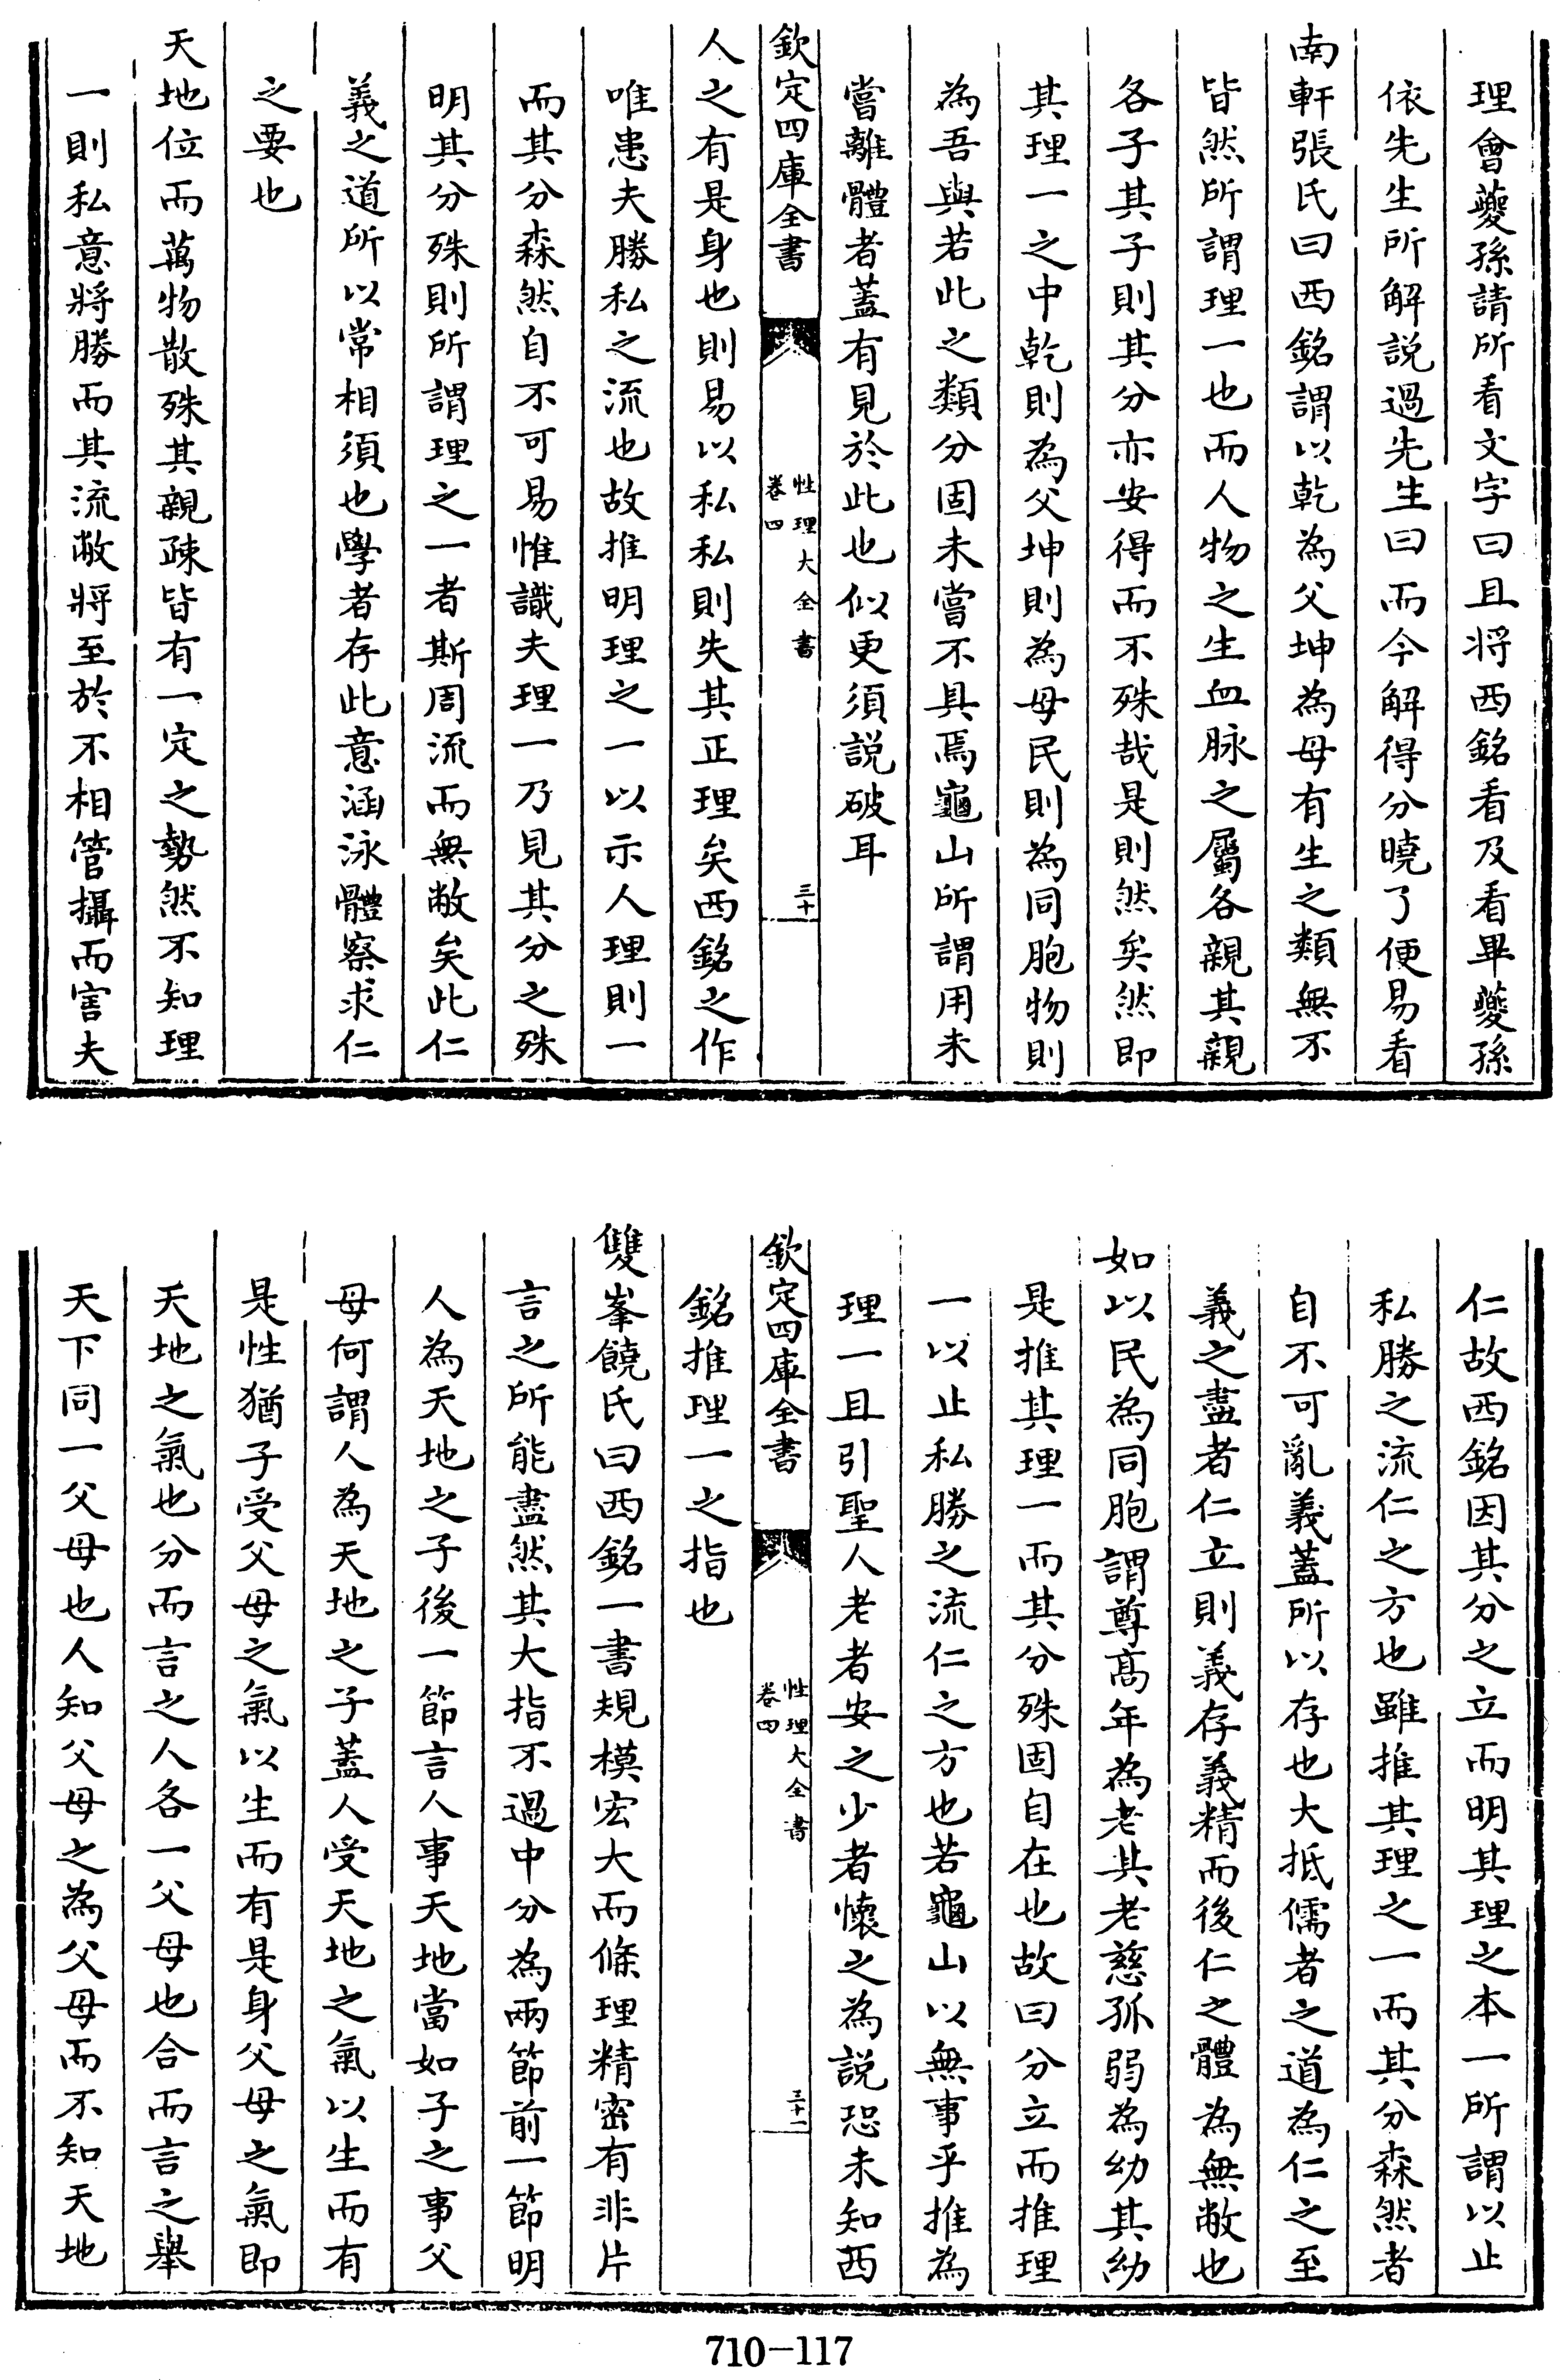 理會蘷孫請所看文字曰且将西銘看及看畢蘷孫
依先生所解説過先生曰而今解得分曉了便易看
南軒張氏曰西銘謂以乾為父坤為母有生之類無不
皆然所謂理一也而人物之生血脉之屬各親其親
各子其子則其分亦安得而不殊哉是則然矣然即
其理一之中乾則為父坤則為母民則為同胞物則
為吾與若此之類分固未嘗不具焉龜山所謂用未
嘗離體者蓋有見於此也似更須説破耳
欽定四庫全書
性理大全書
卷四
三十
人之有是身也則易以私私則失其正理矣西銘之作
唯患夫勝私之流也故推明理之一以示人理則一
而其分森然自不可易惟識夫理一乃見其分之殊
明其分殊則所謂理之一者斯周流而無敝矣此仁
義之道所以常相須也學者存此意涵泳體察求仁
之要也
天地位而萬物散殊其親疎皆有一定之勢然不知理
一則私意將勝而其流敝將至於不相管攝而害夫
仁故西銘因其分之立而明其理之本一所謂以止
私勝之流仁之方也雖推其理之一而其分森然者
自不可亂義蓋所以存也大抵儒者之道為仁之至
義之盡者仁立則義存義精而後仁之體為無敝也
如以民為同胞謂尊髙年為老其老慈孤弱為幼其幼
是推其理一而其分殊固自在也故曰分立而推理
一以止私勝之流仁之方也若龜山以無事乎推為
理一且引聖人老者安之少者懷之為説恐未知西
欽定四庫全書
性理大全書
卷四
三十一
銘推理一之指也
雙峯饒氏曰西銘一書規模宏大而條理精密有非片
言之所能盡然其大指不過中分為兩節前一節明
人為天地之子後一節言人事天地當如子之事父
母何謂人為天地之子蓋人受天地之氣以生而有
是性猶子受父母之氣以生而有是身父母之氣即
天地之氣也分而言之人各一父母也合而言之舉
天下同一父母也人知父母之為父母而不知天地
710-117